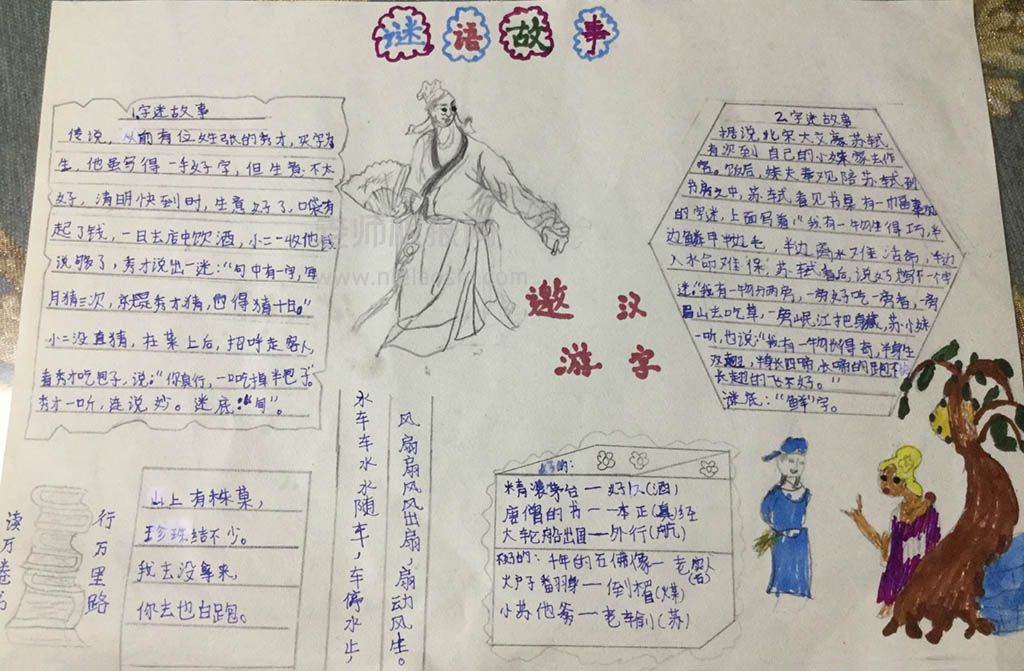 谜语故事
1.字迷故事
传说，从前有位姓张的秀才，买字为
生，他虽写得一手好字，但生意不太
好，清明快到时，生意好了，口袋有
起了钱，一日去店中饮酒，小二一收他钱
说够了，秀才说出一迷："句中有一字，每
月猜三次，秀才猜，也得猜十日。"
小二没直猜，在菜上后，招呼走客人，
看秀才吃包子，说："你真行，一口吃掉半包子。"
秀才一听，连说妙。迷底："旬"。
邀汉
游字
2.字迷故事
据说北宋大文豪苏轼，
有次到自己的小妹家去作
客。饭后，妹夫秦观陪苏轼到
书房之中，苏轼看见书桌有一幅
的字迷，上面写着："我有一物生得巧，半
边鳞甲半边毛，半边离水难活命，半边
入水命难保。苏轼看后，说好，也写下一个字
迷"我有一物分两旁，一旁好吃一旁香，一旁
眉山去吃草，一旁岷江把身藏，苏小妹
一听，也说："我有一物长得奇，半身生
双翅，半身长四蹄，长蹄的跑不快，
长翅的飞不好。"
谜底："鲜"字。
读万卷书
行万里路
山上有株草，
珍珠结不少。
我去没拿来，
你去也白跑。
水车车水水随车，车停水止，
风扇扇风风出扇，扇动风生。
精装茅台一好久(酒)
唐僧的书一一本正(真)经
大轮船出国一外行(航)
千年的石佛像一老实人(石)
炉子翻身一倒楣(煤)
小苏他爷一老车俞(苏)